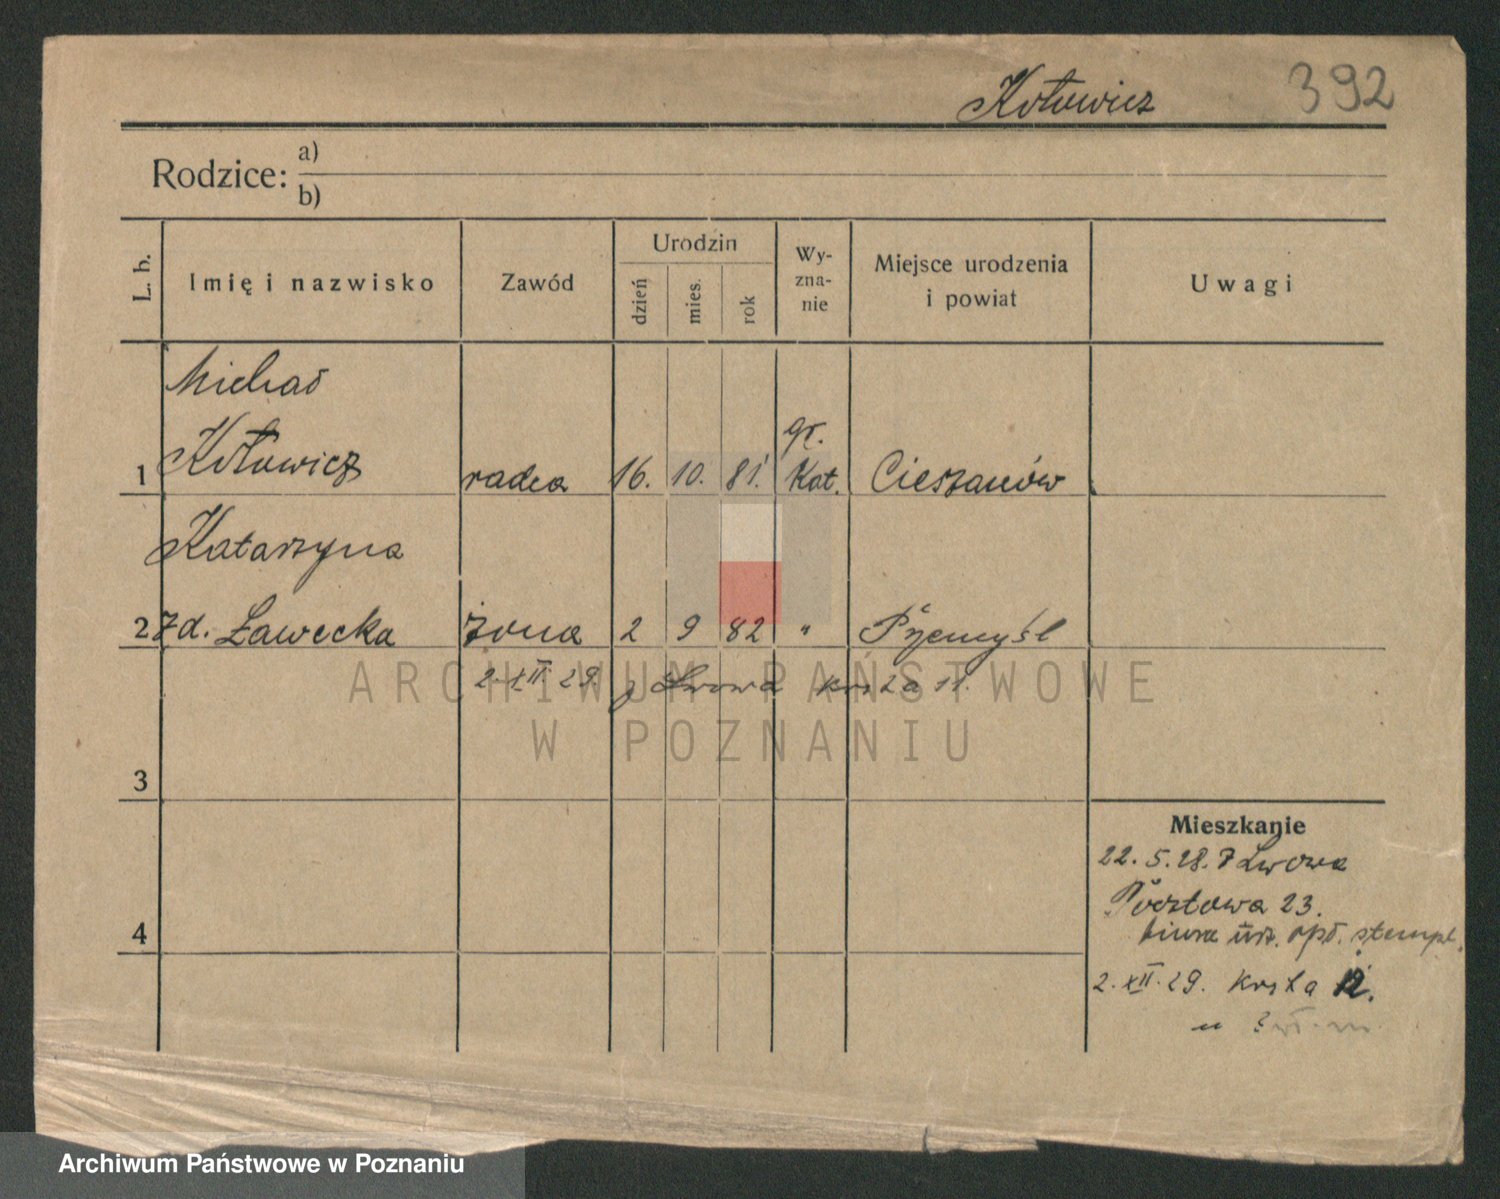 Kołowicz 392
Rodzice: a)
b)
L. b. Imię i nazwisko Zawód Urodzin dzień mies. rok Wy-zna-nie Miejsce urodzenia i powiat Uwagi
Michał
Kołowicz
1 radca 16. 10. 81. gr. Kat. Cieszanów
Katarzyna
2 zd. Ławecka żona 2 9 82 " Przemyśl
2.XII.29. z Lwowa 11.
ARCHIWUM PAŃSTWOWE
W POZNANIU
3
4
Mieszkanie
22.5.28. z Lwowa
Pocztowa 23.
biura opł. stempl.
2.XII.29. 12.
Archiwum Państwowe w Poznaniu